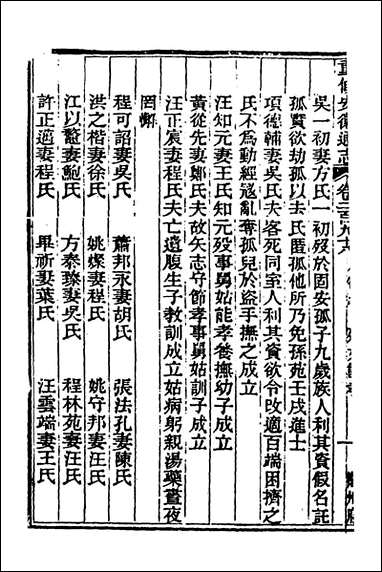 重修安徽通志 卷二百九十六
吳一初妻方氏一初歿於固安孤子九歲族人利其資假名託
孤賢欲劫孤以去氏匿孤他所乃免孫苑壬戌進士
項德輔妻吳氏夫客死同室人利其資欲令改適百端困擠之
氏不為動經亂奪孤兒於盜手撫之成立
汪知元妻王氏知元歿事舅姑能孝養撫幼子成立
黃從先妻鄭氏夫故矢志守節孝事舅姑訓子成立
汪正宸妻程氏夫亡遺腹生子教訓成立姑病躬親湯藥晝夜
罔懈
程可詔妻吳氏 蕭邦永妻胡氏 張法孔妻陳氏
洪之楷妻徐氏 姚燦妻程氏 姚守邦妻汪氏
江以鼇妻鮑氏 方泰臻妻吳氏 程林苑妻汪氏
許正適妻程氏 畢祈妻葉氏 汪雲端妻王氏